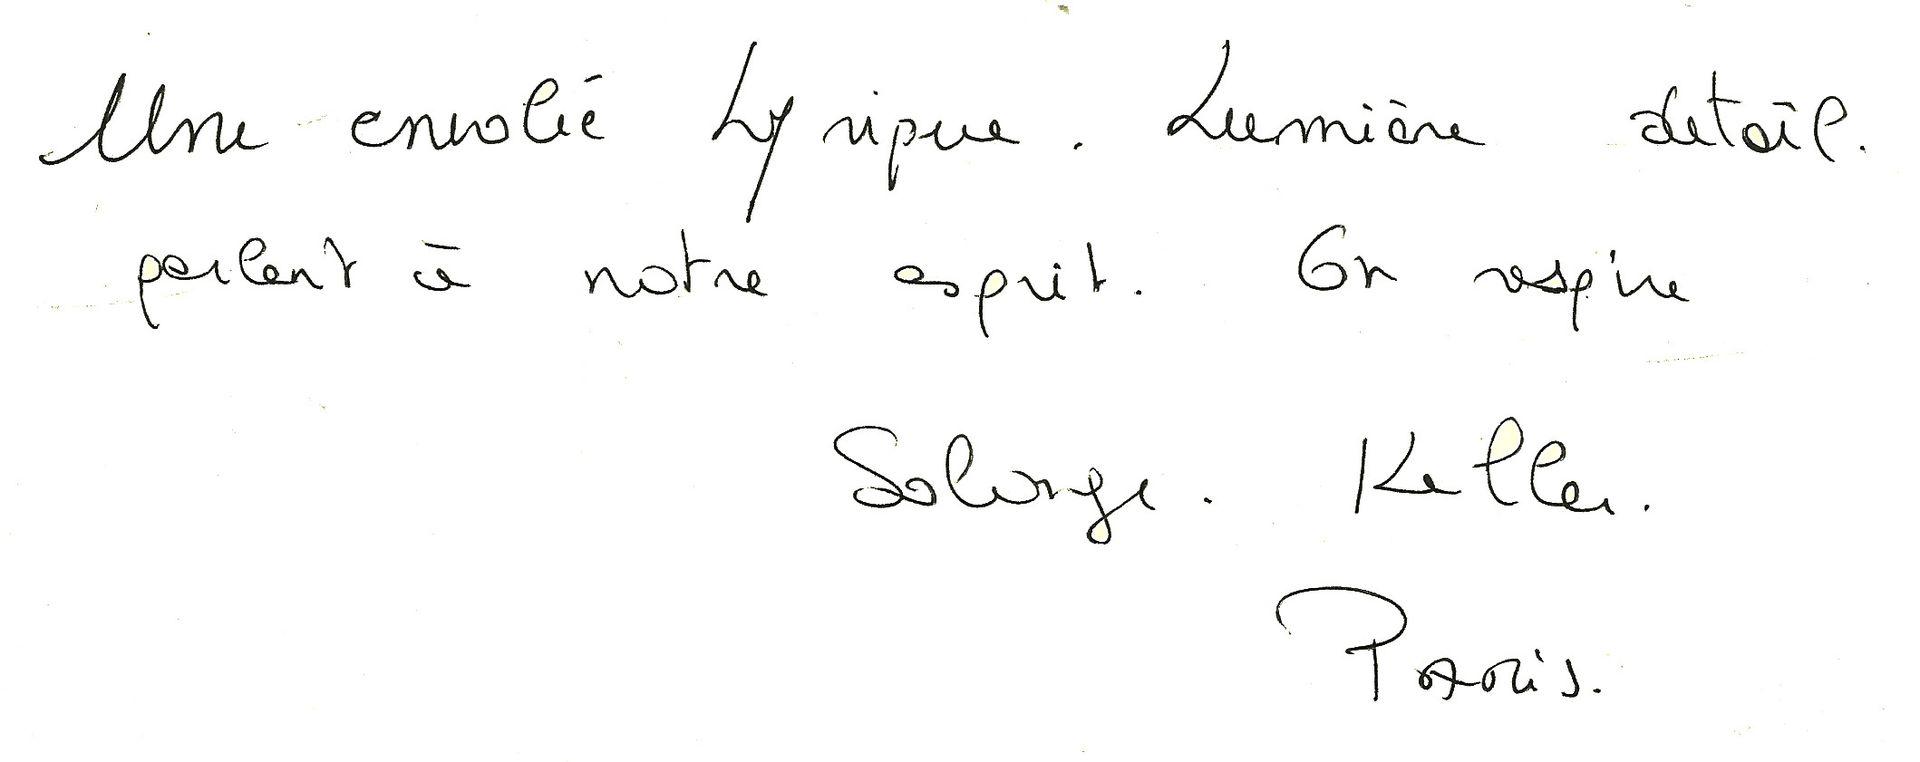 Une envolée Lyrique. Lumière detail.
parlent à notre esprit. On respire
Solange. Keller.
Paris.